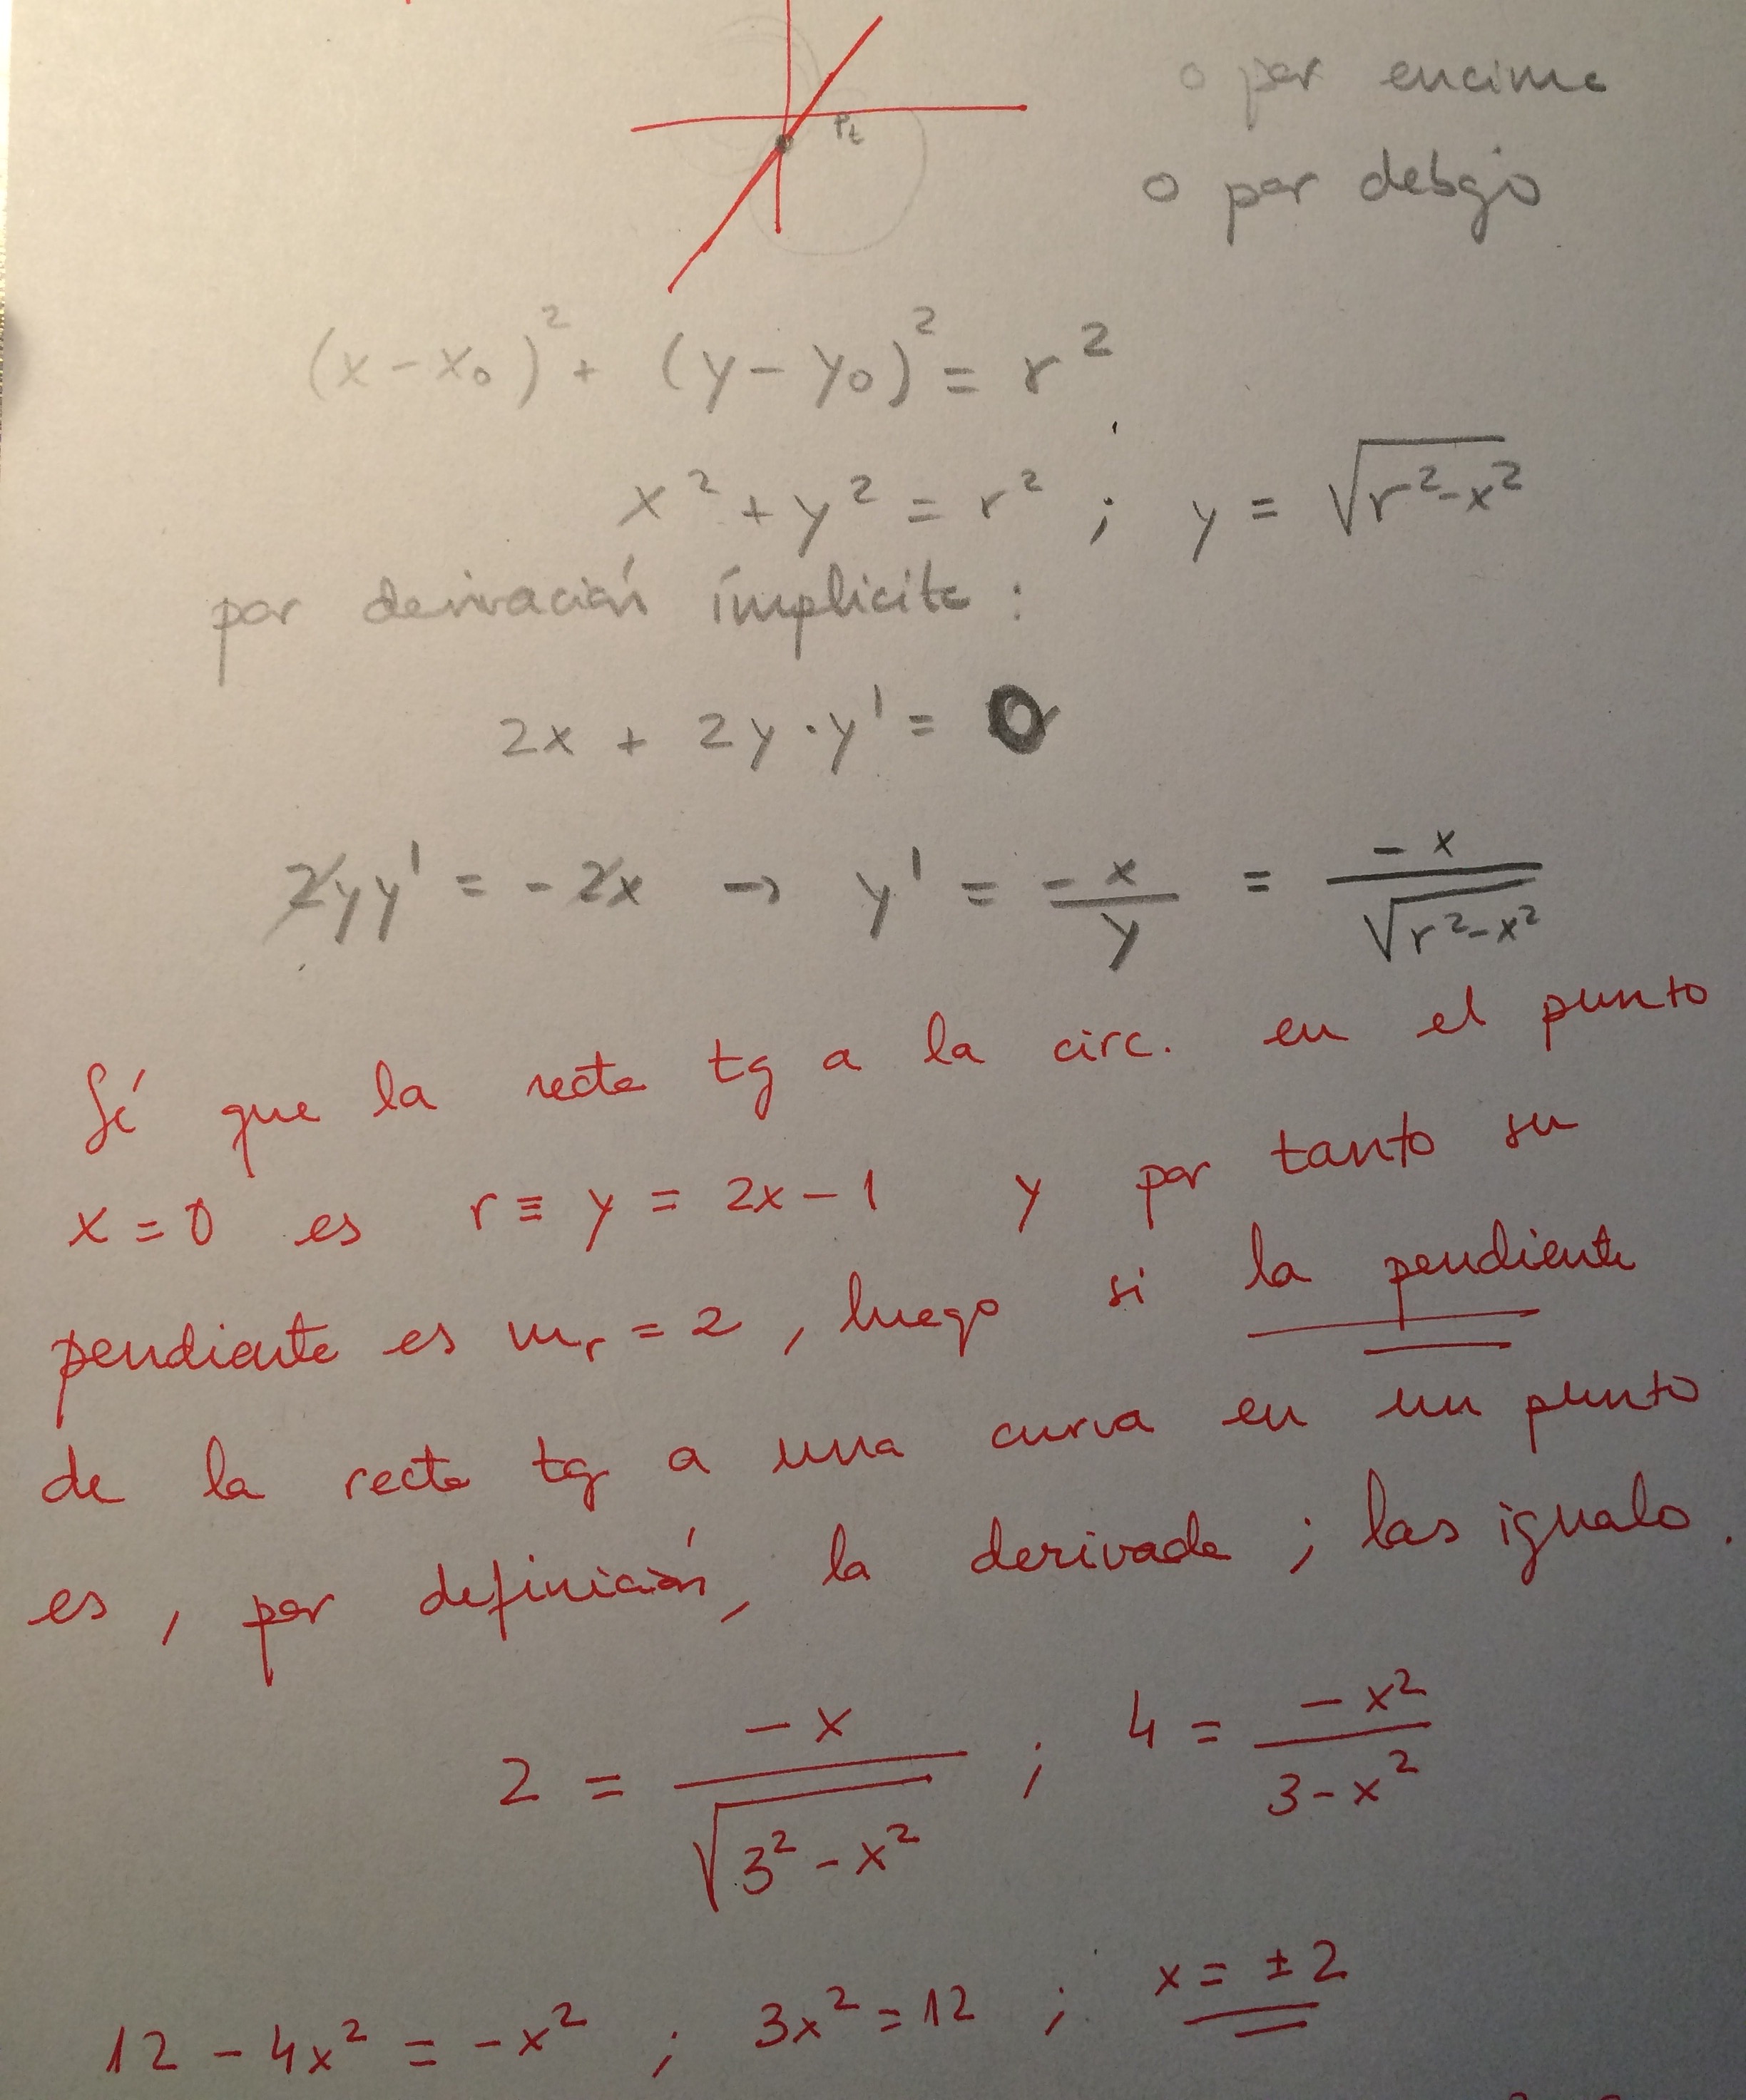 o por encima
Pt
o por debajo
(x-x₀)² + (y-y₀)² = r²
x² + y² = r² ; y = √(r²-x²)
por derivación implícita :
2x + 2y·y' = 0
2yy' = -2x → y' = -x/y = -x/√(r²-x²)
Sé que la recta tg a la circ. en el punto
x = 0 es r ≡ y = 2x-1 y por tanto su
pendiente es mᵣ = 2 , luego si la pendiente
de la recta tg a una curva en un punto
es , por definición, la derivada ; las igualo.
2 = -x/√(3²-x²) ; 4 = -x²/3-x²
12 - 4x² = -x² ; 3x² = 12 ; x = ±2